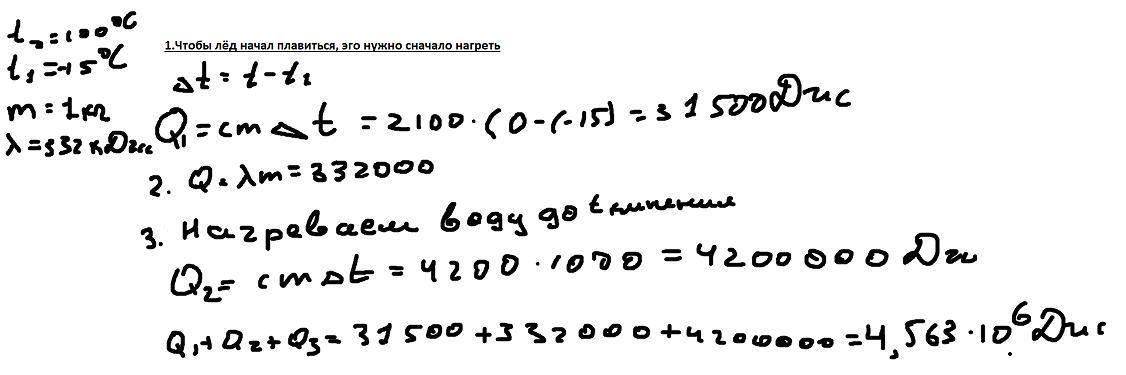 t₂=100°C
t₁=-15°C
m=1кг
λ=332кДж
1.Чтобы лёд начал плавиться, эго нужно сначало нагреть
Δt = t-t₁
Q₁=cmΔt = 2100·(0-(-15)=31500Дж
2. Q=λm=332000
3. Нагреваем воду до tкипения
Q₂= cmΔt=4200·1000=4200000Дж
Q₁+Q₂+Q₃=31500+332000+4200000=4,563·10⁶Дж